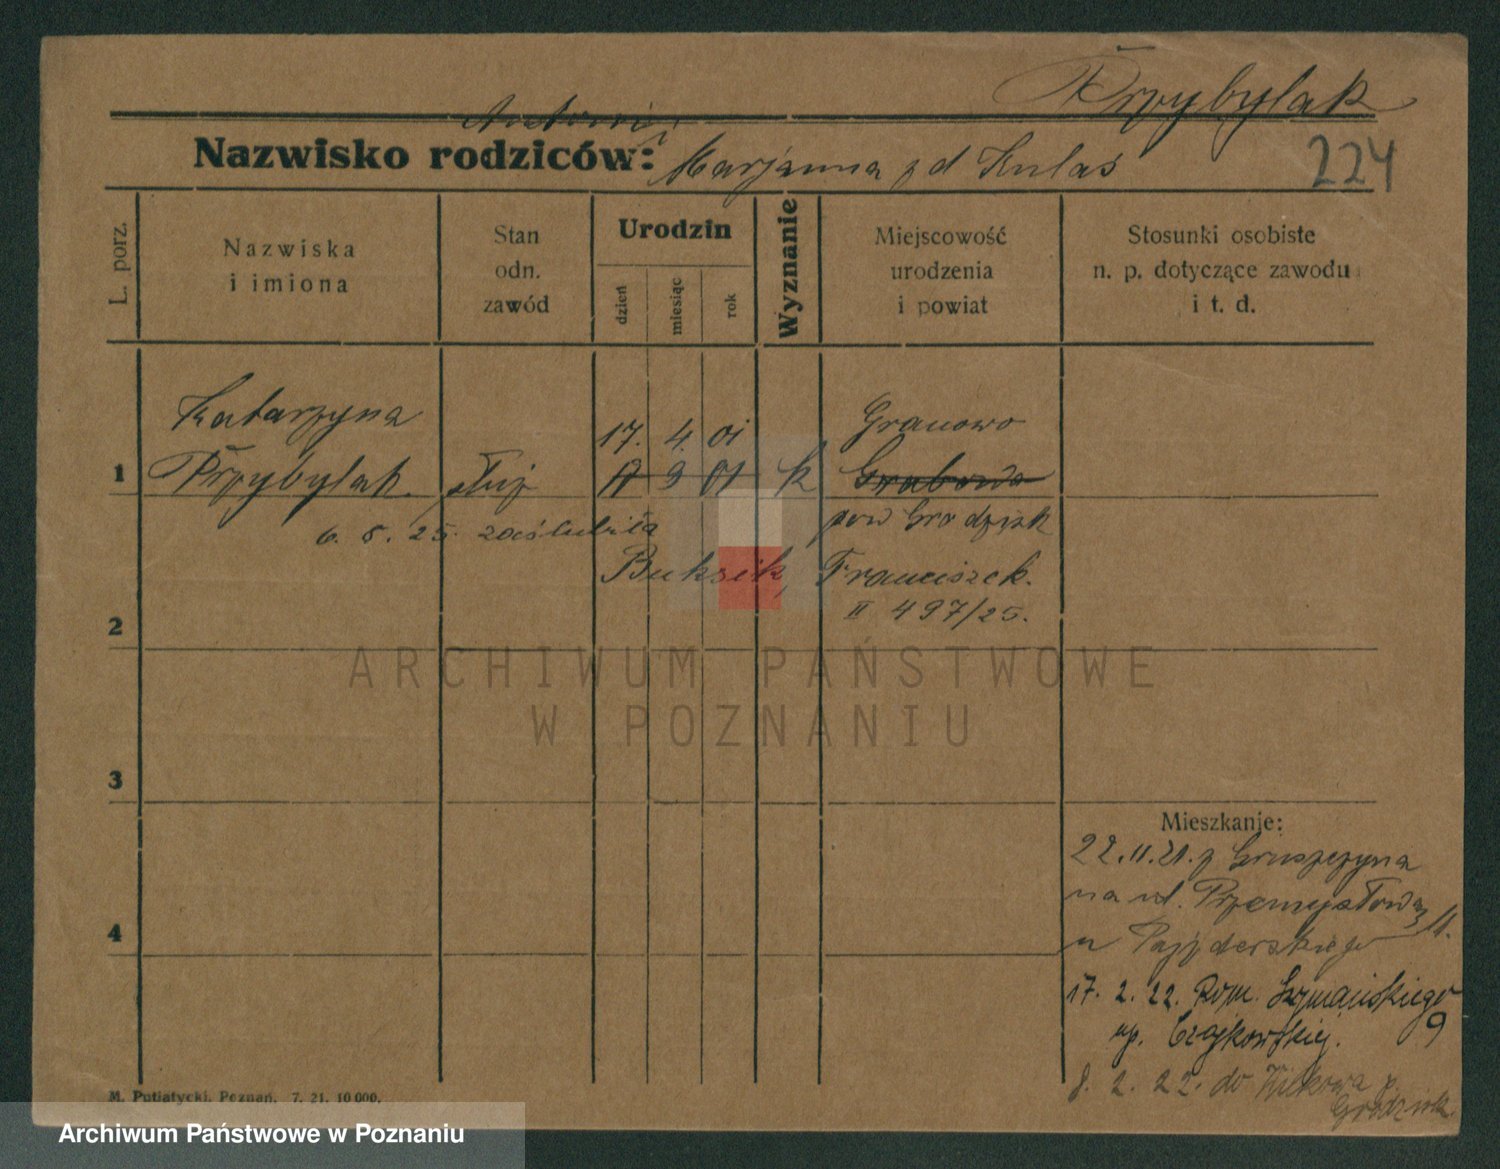 Przybylak
Antoni i
Nazwisko rodziców: Marjanna z d Kulas
224
L. porz.
Nazwiska
i imiona
Stan
odn.
zawód
Urodzin
dzień
miesiąc
rok
Wyznanie
Miejscowość
urodzenia
i powiat
Stosunki osobiste
n. p. dotyczące zawodu
i t. d.
Katarzyna
17. 4. 01 Granowo
1 Przybylak służ 17 9 01 k Grabowo
pow Grodzisk
6. 8. 25. zaślubiła
Buksik, Franciszek.
II 497/25.
2
ARCHIWUM PAŃSTWOWE
W POZNANIU
3
Mieszkanie:
22.11.21. z Gruszczyna
na ul. Przemysłową 11.
u Pajzderskiego
4
17. 2. 22. Rom. Szymańskiego 9
up. Czajkowskiej.
8. 2. 22. do Wilkowa p.
Grodzisk
M. Putiatycki, Poznań. 7. 21. 10 000.
Archiwum Państwowe w Poznaniu